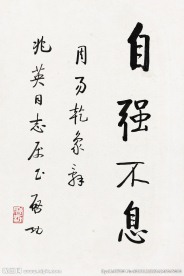 自强不息
周易乾象辞
兆英同志属正 启功